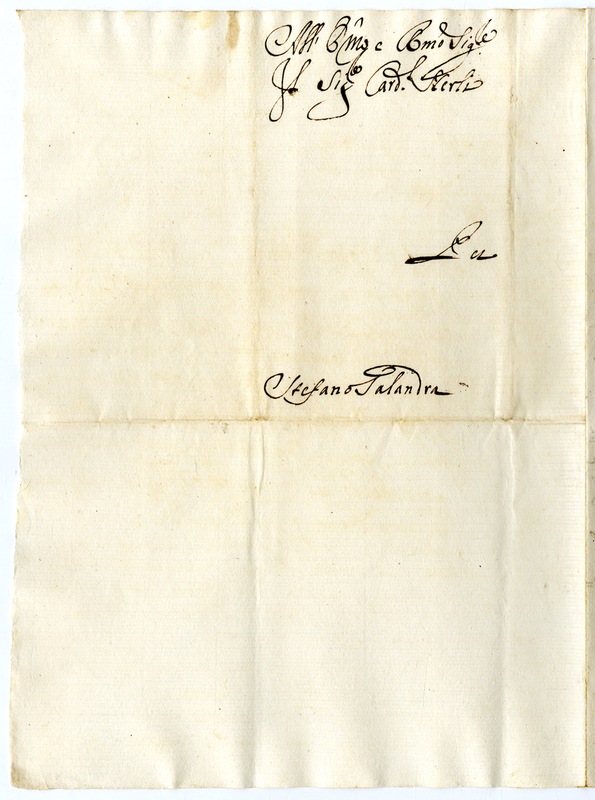 All' Em̃o e Rmõ Sigre
Il Sigr Card. Nerli
Per
Stefano Palandra